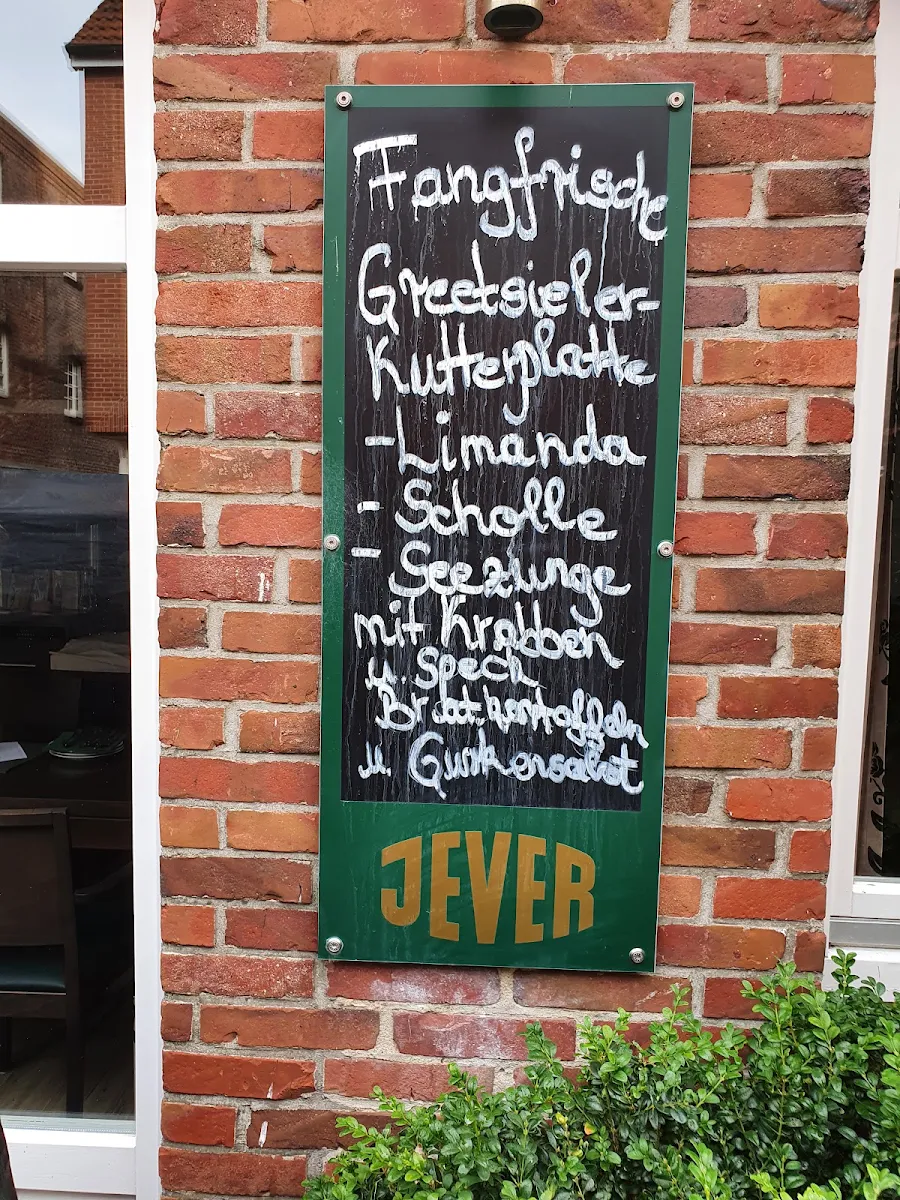 Fangfrische
Greetsieler-
Kutterplatte
- Limanda
- Scholle
- Seezunge
mit Krabben
u. Speck
Bratkartoffeln
u. Gurkensalat
JEVER